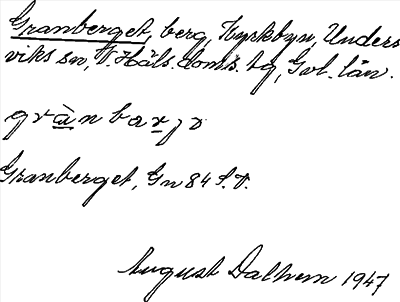 Granberget, berg, Kyrkbyn, Unders
viks sn, V. Häls. doms. tg, Gvl. län.
grànbarjə
Granberget, Gn 84 S.V.
August Dalhem 1947